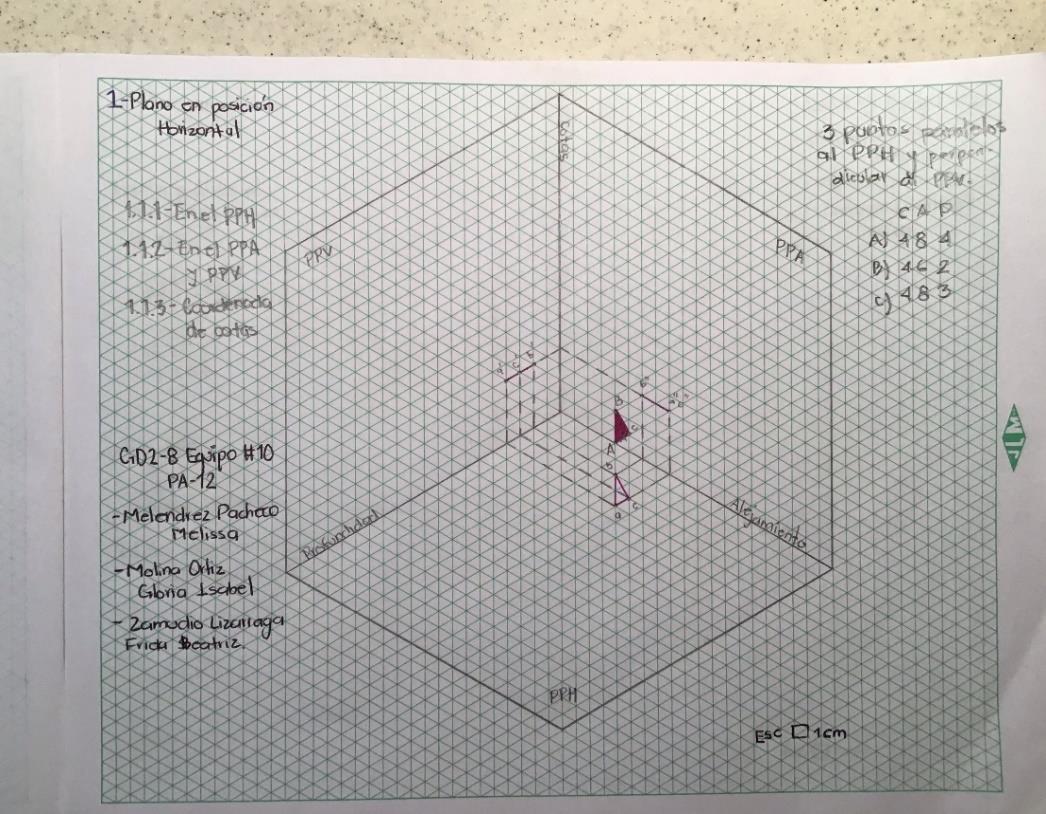 1-Plano en posición
Horizontal
1.1.1-En el PPH
1.1.2-En el PPA
y PPV
1.1.3-Coordenada
de cotas
GD2-B Equipo #10
PA-12
-Melendrez Pacheco
Melissa
-Molina Ortiz
Gloria Isabel
-Zamudio Lizarraga
Frida Beatriz.
Cotas
PPV
PPA
3 puntos paralelos
al PPH y perpen-
dicular al PPV.
C A P
A) 4 8 4
B) 4 6 2
C) 4 8 3
a" c" b"
b'" a'" c'"
B
c
A
b
a c
Profundidad
Alejamiento
PPH
Esc 1cm